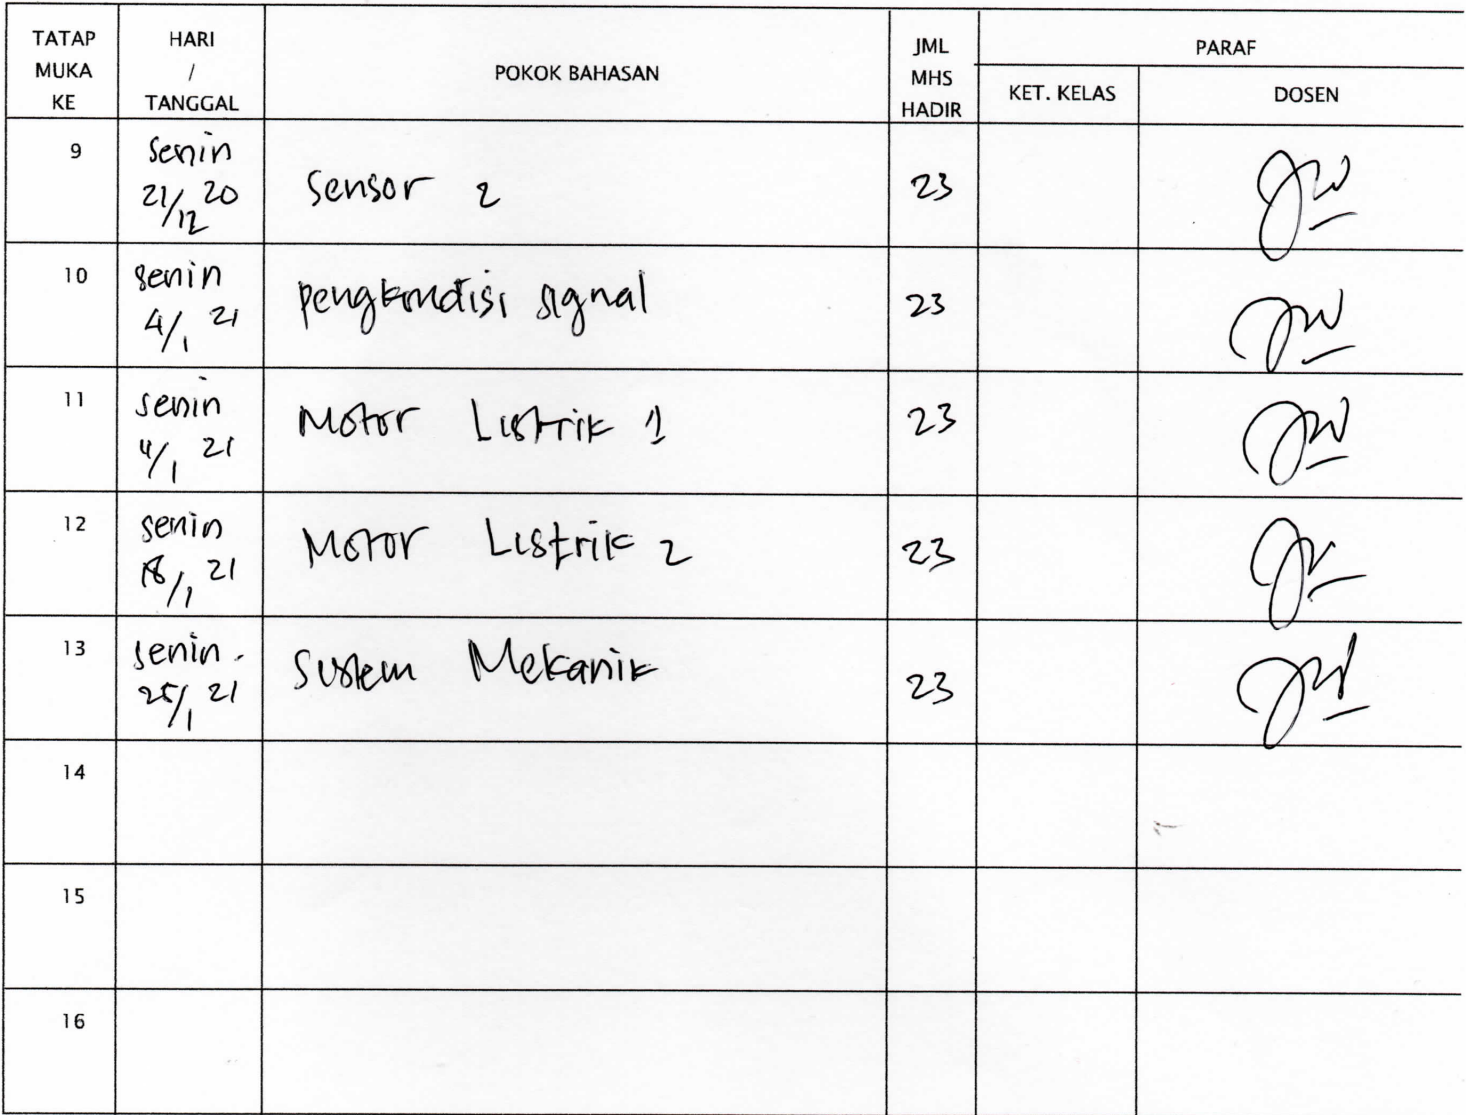 TATAP MUKA KE
HARI / TANGGAL
POKOK BAHASAN
JML MHS HADIR
PARAF
KET. KELAS
DOSEN
9 Senin 21/12 20 Sensor 2 23
10 Senin 4/1 21 pengkondisi signal 23
11 Senin 21 Motor Listrik 1 23
12 Senin 18/1 21 Motor Listrik 2 23
13 Senin. 25/1 21 Sistem Mekanik 23
14
15
16